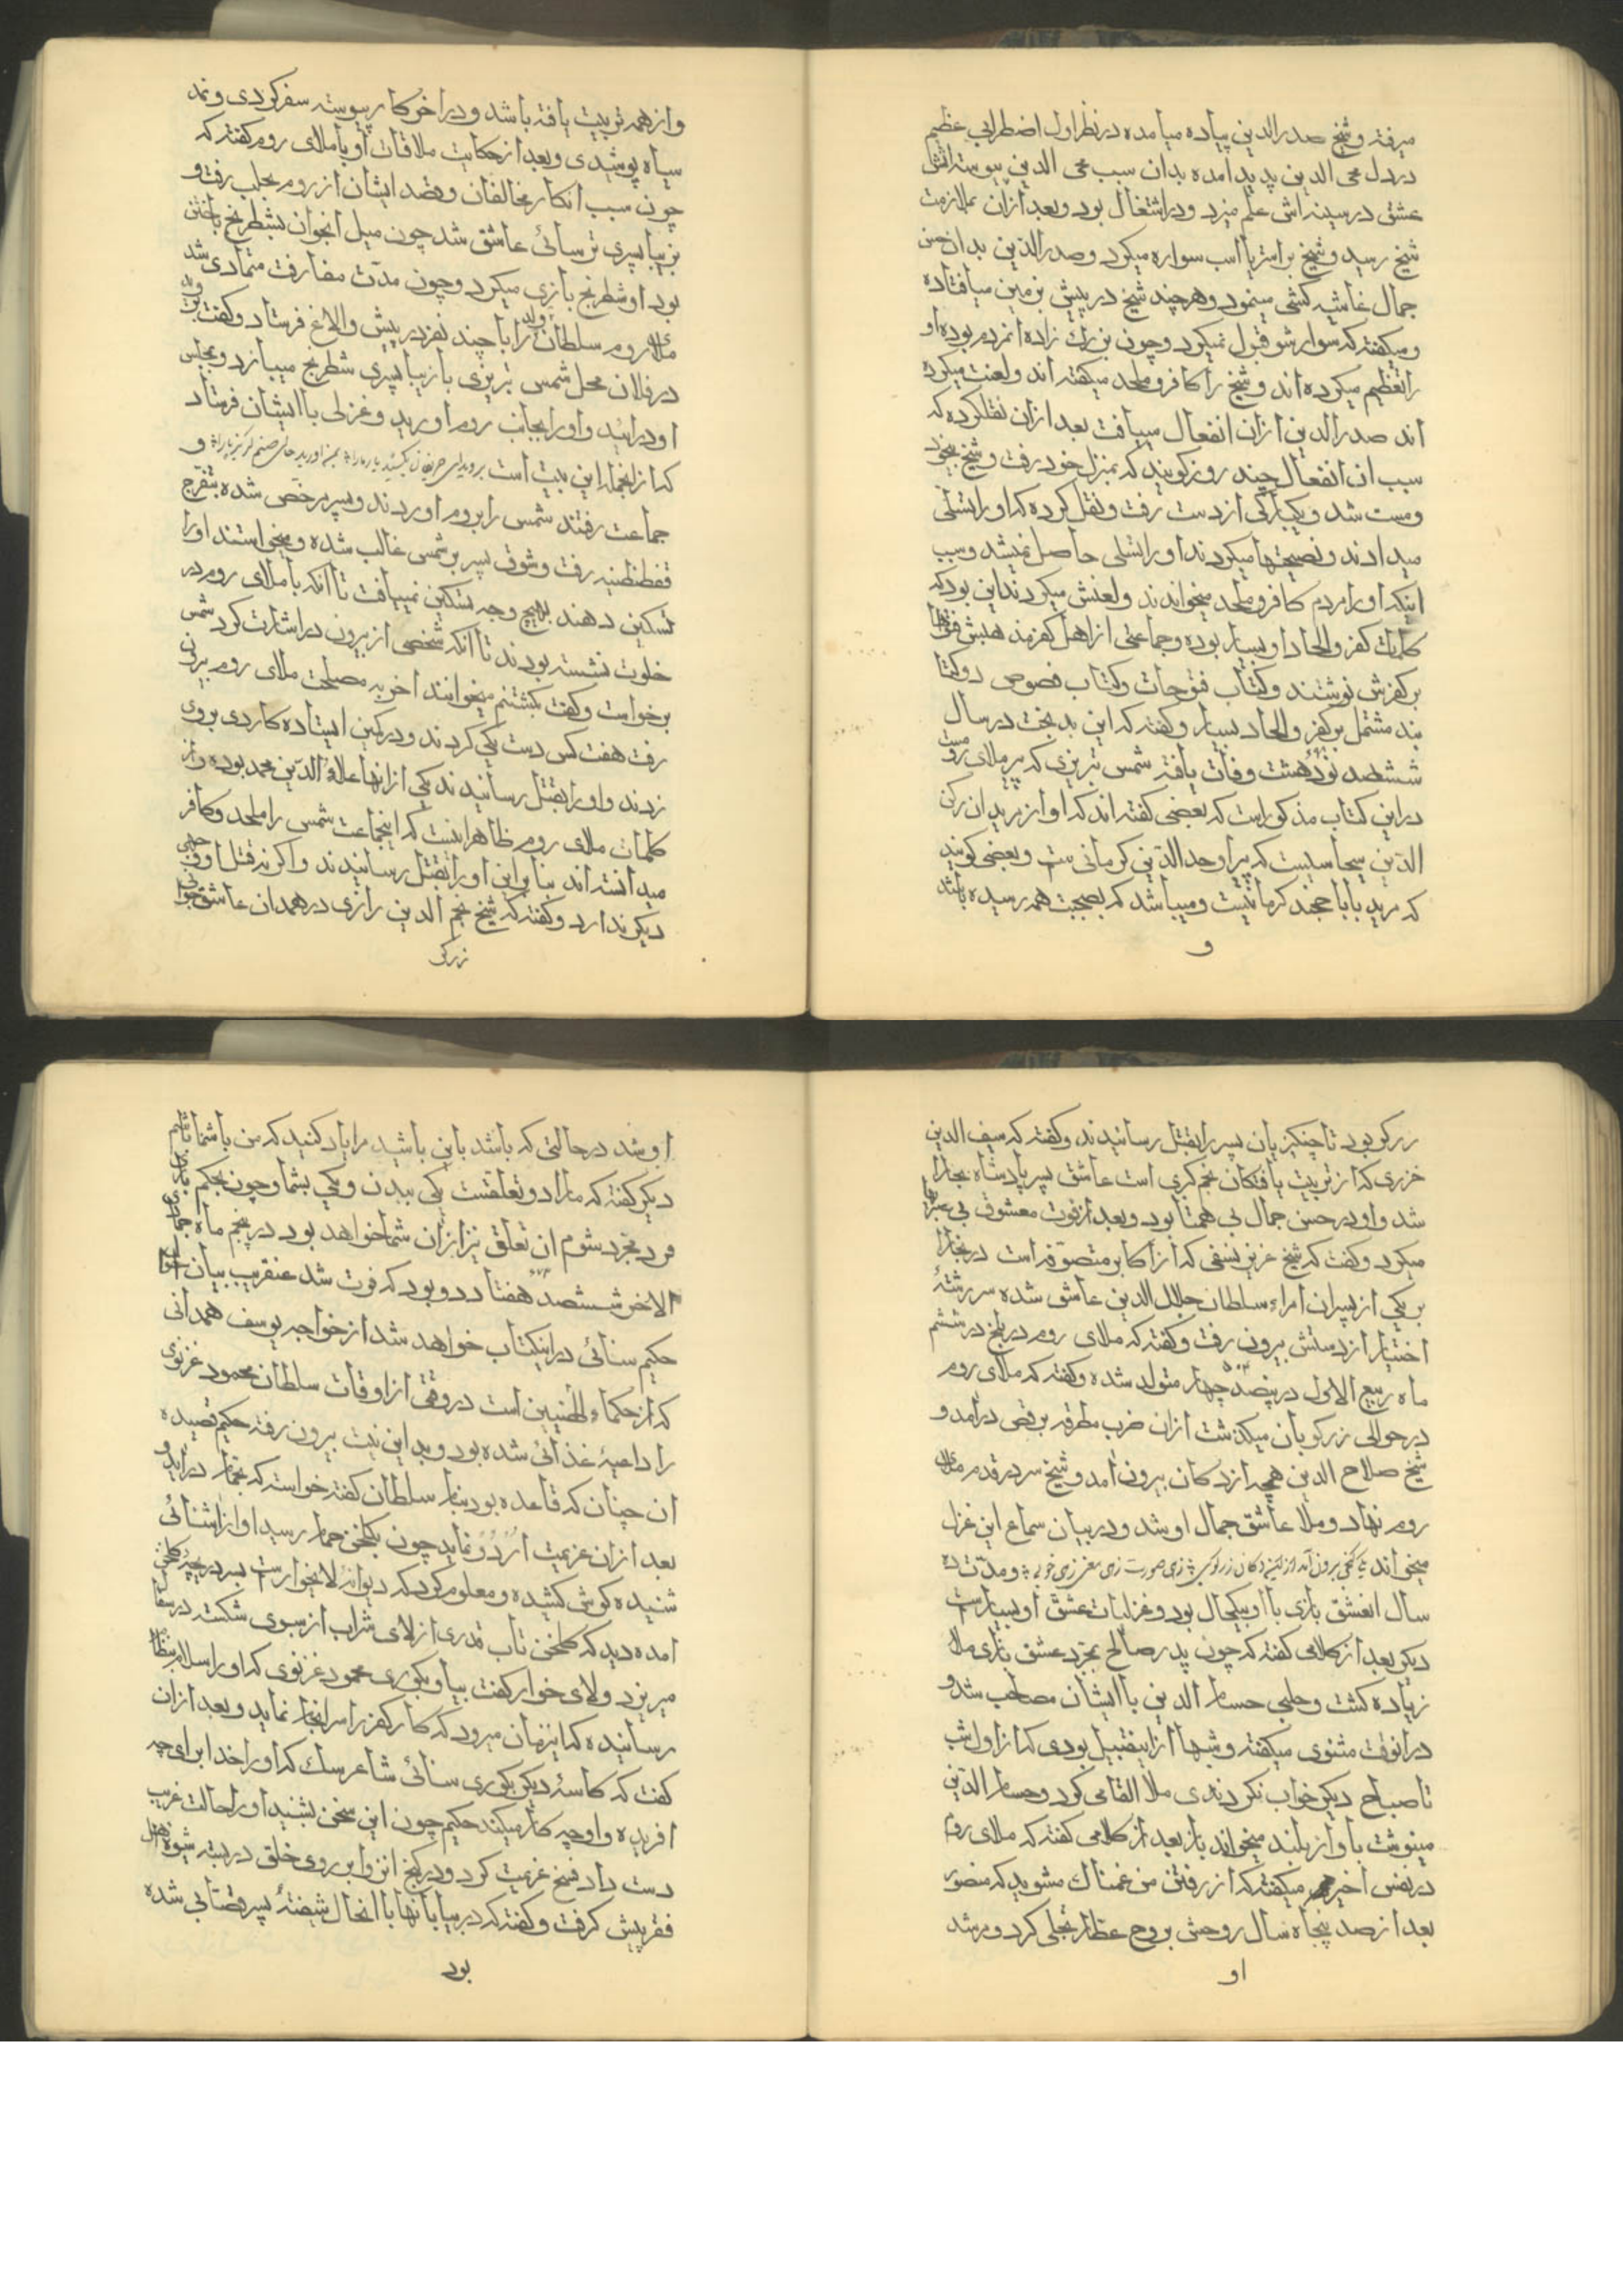 میرفته و شیخ صدرالدین پیاده میامده در نظر اول اضطرابی عظیم
در دل محی الدین پدید امده بدان سبب محی الدین پیوسته اتش
عشق در سینه اش علم میزد و در اشتغال بود و بعد ازان بملازمت
شیخ رسید و شیخ بر استر یا اسب سواره میکرد و صدرالدین بدان حسن
جمال غاشیه کشی مینمود و هر چند شیخ در پیش بزمین میافتاده
و میکفته که سوار شو قبول نمیکرد و چون بزرک زاده انمردم بوده او
را تعظیم میکرده اند و شیخ را کافر و ملحد میکفته اند و لعنت میکرده
اند صدرالدین ازان انفعال مییافت بعد ازان نقلکرده که
سبب ان انفعال چند روز کویند که بمنزل خود رفت و شیخ بیخود
و مست شد و یکبارکی از دست رفت و نقل کرده که او را تسلی
میدادند و نصیحتها میکردند او را تسلی حاصل نمیشد و سبب
اینکه او را مردم کافر و ملحد میخواندند و لعنش میکردند این بود که
کلمات کفر و الحاد او بسیار بوده و جماعتی از اهل کفر مذهبش
بر کفرش نوشتند و کتاب فتوحات و کتاب فصوص دو کتا
بند مشتمل بر کفر و الحاد بسیار و کفته که این بدبخت در سال
ششصد نود هشت وفات یافته شمس تبریزی که پیر ملای روم
در این کتاب مذکور است که بعضی کفته اند که او از مریدان رکن
الدین سجاسیست که پیر اوحدالدین کرمانی ست و بعضی کویند
که مرید بابا خجند کرمانیست و میباشد که بصحبت همه رسیده باشد
و
و از همه تربیت یافته باشد و در اخر کار پیوسته سفر کردی و نمد
سیاه پوشیدی و بعد از حکایت ملاقات او با ملای روم کفته که
چون سبب انکار مخالفان و قصد ایشان از روم بحلب رفت و
بزیبا پسری ترسائی عاشق شد چون میل انجوان بشطرنج باختن
بود او شطرنج بازی میکرد و چون مدت مفارقت متمادی شد
ملای روم سلطان ولد را با چند نفر درپیش و الاغ فرستاد و کفت
در فلان محل شمس تبریزی با زیبا پسری شطرنج میبازد و بمجلس
او درائید و او را بجانب روم اورید و غزلی با ایشان فرستاد
که از انجمله این بیت است بروید ای حریفان بکشید یار ما را بمن اورید حالی صنم کریزپا را و
جماعت رفتند شمس را بروم اوردند و پسر مرخص شده بتفرج
قسطنطنیه رفت و شوق پسر بر شمس غالب شده و میخواستند او را
تسکین دهند بهیچ وجه تسکین نمییافت تا انکه با ملای روم در
خلوت نشسته بودند تا انکه شخصی از بیرون در اشارت کرد شمس
برخواست و کفت بکشتنم میخوانند اخر به مصلحت ملای روم بیرون
رفت هفت کس دست یکی کردند و در کمین ایستاده کاردی بروی
زدند و او را بقتل رسانیدند یکی از انها علاء الدین محمد بوده و از
کلمات ملای روم ظاهر اینست که اینجماعت شمس را ملحد و کافر
میدانسته اند بنا براین او را بقتل رسانیدند و اکرنه قتل او وجهی
دیکر ندارد و کفته که شیخ نجم الدین رازی در همدان عاشق جوان
زرکر
زرکر بود تا چنکیزیان پسر را بقتل رسانیدند و کفته که سیف الدین
خزری که از تربیت یافتکان نجم کبری است عاشق پسر پادشاه بخارا
شد و او در حسن جمال بی همتا بود و بعد از فوت معشوق بی صبریها
میکرد و کفت که شیخ عزیز نسفی که از اکابر متصوفه است در بخارا
بر یکی از پسران امراء سلطان جلال الدین عاشق شده سررشتهٔ
اختیار از دستش بیرون رفت و کفته که ملای روم در بلخ در ششم
ماه ربیع الاول در پنصد چهار متولد شده و کفته که ملای روم
در حوالی زرکوبان میکذشت ازان ضرب مطرقه برقص درامد و
شیخ صلاح الدین همچه از دکان بیرون امد و شیخ سر در قدم ملای
روم نهاد و ملا عاشق جمال او شد و دربیان سماع این غزل
میخواند یکی کنجی برون آمد ازین دکان زرکوبی زهی صورت زهی معنی زهی خوبی و مدت ده
سال انعشق بازی با او بیکحال بود و غزلیات عشق او بسیار ست
دیکر بعد از کلامی کفته که چون پدر صالح بمجرد عشق بازی ملا
زیاده کشت و چلبی حسام الدین با ایشان مصاحب شد و
در انوقت مثنوی میکفته و شبها از اینقبیل بودی که از اول شب
تا صباح دیکر خواب نکردندی ملا القا می کرد و حسام الدین
مینوشت با واز بلند میخواند باز بعد از کلامی کفته که ملای روم
در نفس اخیر میکفته که از رفتن من غمناک مشوید که منصور
بعد از صد پنجاه سال روحش بر وح عطار تجلی کرد و مرشد
او
او شد در حالتی که باشد باین باشید مرا یاد کنید که من با شما باشم
دیکر کفته که ما را دو تعلقست یکی ببدن و یکی بشما و چون بحکم باری
فرد مجرد شوم ان تعلق نیز ازان شما خواهد بود در پنجم ماه جمادی
الاخر ششصد هفتاد دو بود که فوت شد عنقریب بیان احوال
حکیم سنائی در اینکتاب خواهد شد از خواجه یوسف همدانی
که از حکماء الهیین است در وقتی از اوقات سلطان محمود غزنوی
را داعیهٔ غذائی شده بود و بدین نیت بیرون رفته حکیم قصیده
ان چنان که قاعده بود بنام سلطان کفته خواسته که بحمام دراید و
بعد ازان عزیمت اردو نماید چون بکلخن حمام رسید اواز اشنائی
شنیده کوش کشیده و معلوم کرد که دیوانه لایخوار ست بسر دریچه کلخن
امده دید که کلخن تاب قدری از لای شراب از سبوی شکسته در سفال
میریزد و لای خوار کفت بیا و بکوری محمود غزنوی که او را اسلام بنظام
رسانیده که اینزمان میرود که کار کفر را سرانجام نماید و بعد ازان
کفت که کاسهٔ دیکر بکوری سنائی شاعرسک که او را خدا برای چه
افریده و او چه کار میکند حکیم چون این سخن بشنید او را حالت غریب
دست داد فسخ عزیمت کرد و در کنج انزوا بر روی خلق دربسته شیوه اهل
فقر پیش کرفت و کفته که در بیابانها با انحال شیفتهٔ پسر قصابی شده
بود